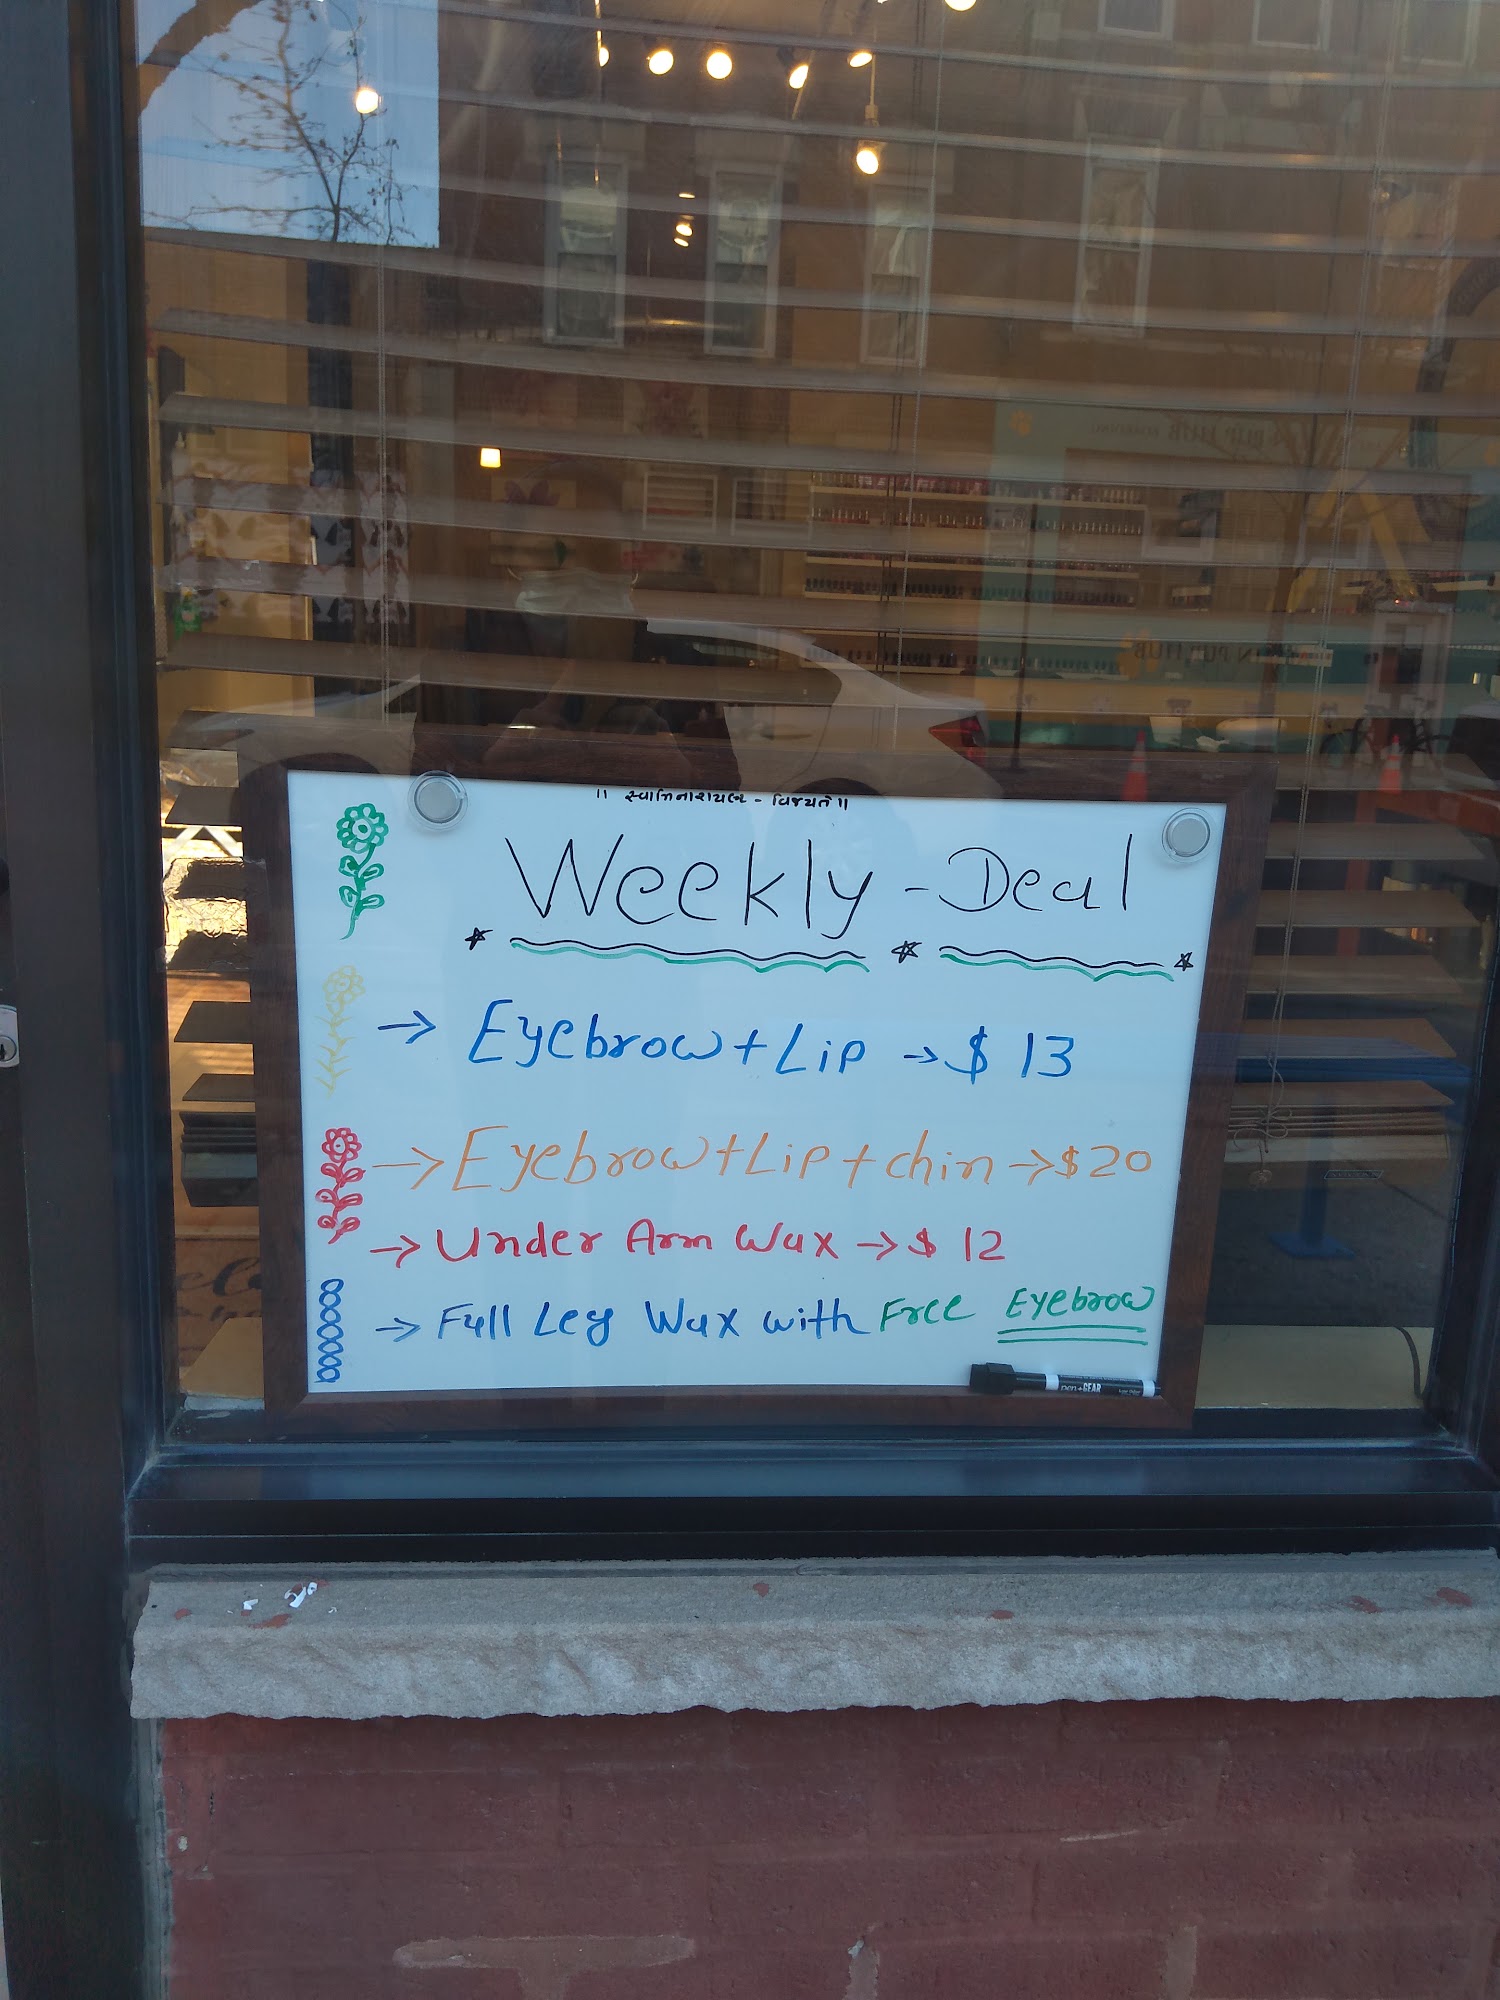 ॥ સ્વામિનારાયણ - વિજયતે ॥
Weekly - Deal
→ Eyebrow + Lip → $ 13
→ Eyebrow + Lip + chin → $20
→ Under Arm Wax → $ 12
→ Full Leg Wax with Free Eyebrow
pen+GEAR